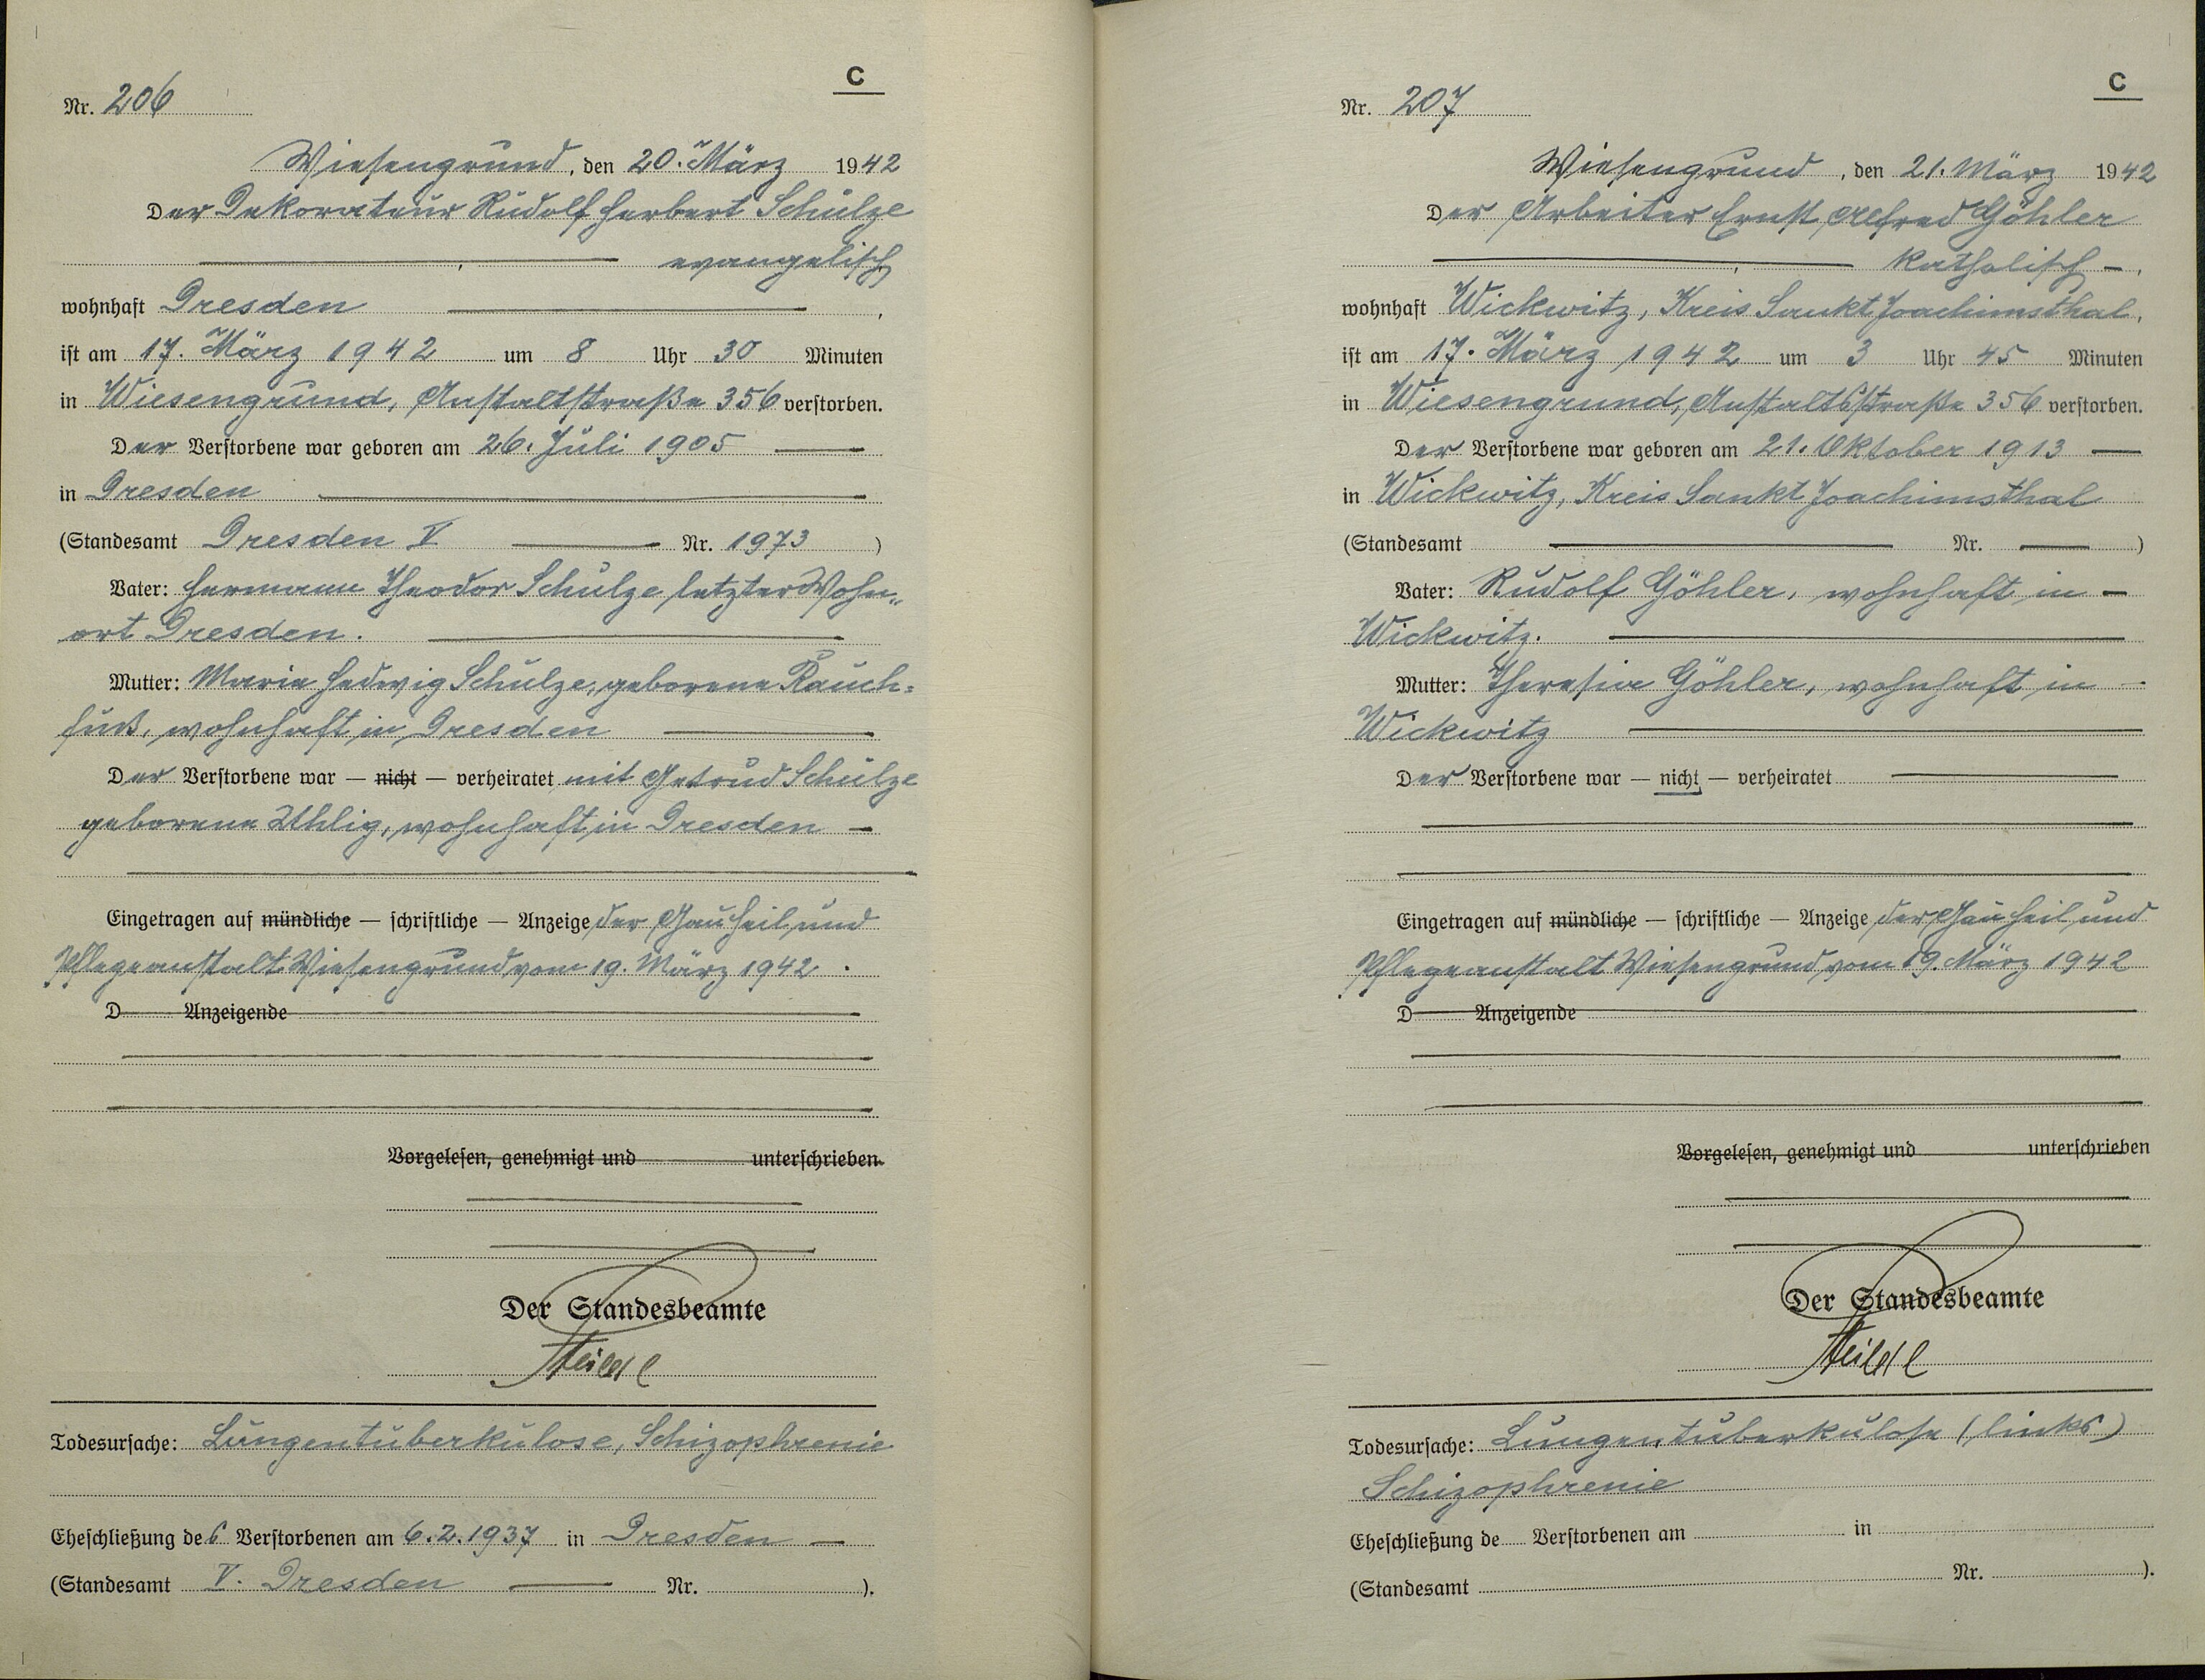 C
Nr. 206
Wiesengrund, den 20. März 1942
Der Dekorateur Rudolf Herbert Schulze
evangelisch
wohnhaft Dresden ,
ist am 17. März 1942 um 8 Uhr 30 Minuten
in Wiesengrund, Anstaltstraße 356 verstorben.
Der Verstorbene war geboren am 26. Juli 1905
in Dresden
(Standesamt Dresden V Nr. 1973 )
Vater: Hermann Theodor Schulze, letzter Wohn-
ort Dresden.
Mutter: Marie Hedwig Schulze, geborene Rauch-
fuß, wohnhaft in Dresden
Der Verstorbene war — nicht — verheiratet mit Getrud Schulze
geborene Uhlig, wohnhaft in Dresden —
Eingetragen auf mündliche — schriftliche — Anzeige der Gau Heil und
Pflegeanstalt Wiesengrund vom 19. März 1942.
D Anzeigende
Vorgelesen, genehmigt und unterschrieben
Der Standesbeamte
Todesursache: Lungentuberkulose, Schizophrenie
Eheschließung des Verstorbenen am 6.2.1937 in Dresden —
(Standesamt V. Dresden Nr. ).
C
Nr. 207
Wiesengrund, den 21. März 1942
Der Arbeiter Ernst Alfred Göhler
katholisch —,
wohnhaft Wickwitz, Kreis Sankt Joachimsthal,
ist am 17. März 1942 um 3 Uhr 45 Minuten
in Wiesengrund, Anstaltsstraße 356 verstorben.
Der Verstorbene war geboren am 21. Oktober 1913 —
in Wickwitz, Kreis Sankt Joachimsthal
(Standesamt — Nr. — )
Vater: Rudolf Göhler, wohnhaft in —
Wickwitz.
Mutter: Theresia Göhler, wohnhaft in —
Wickwitz
Der Verstorbene war — nicht — verheiratet
Eingetragen auf mündliche — schriftliche — Anzeige der Gau Heil und
Pflegeanstalt Wiesengrund vom 19. März 1942
D Anzeigende
Vorgelesen, genehmigt und unterschrieben
Der Standesbeamte
Todesursache: Lungentuberkulose (links)
Schizophrenie
Eheschließung de Verstorbenen am in
(Standesamt Nr. ).